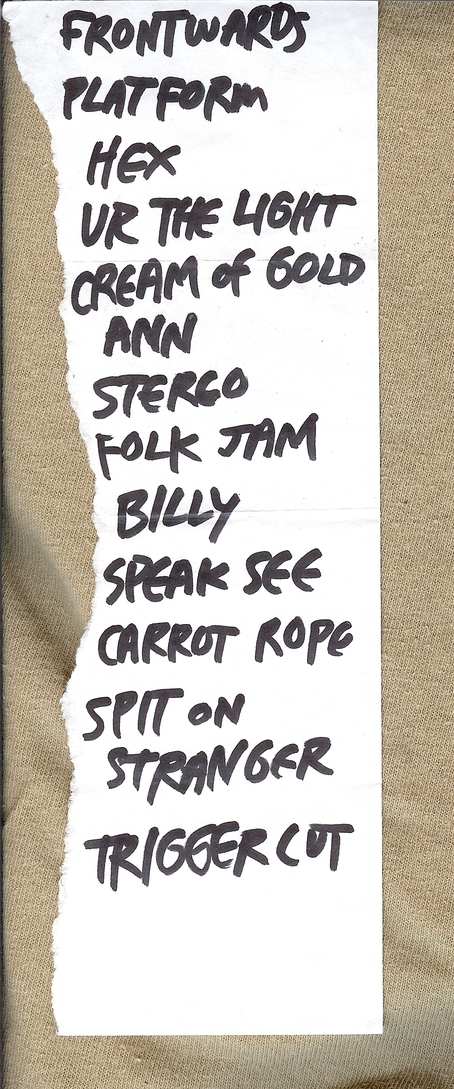 FRONTWARDS
PLATFORM
HEX
UR THE LIGHT
CREAM of GOLD
ANN
STEREO
FOLK JAM
BILLY
SPEAK SEE
CARROT ROPE
SPIT ON
STRANGER
TRIGGER CUT